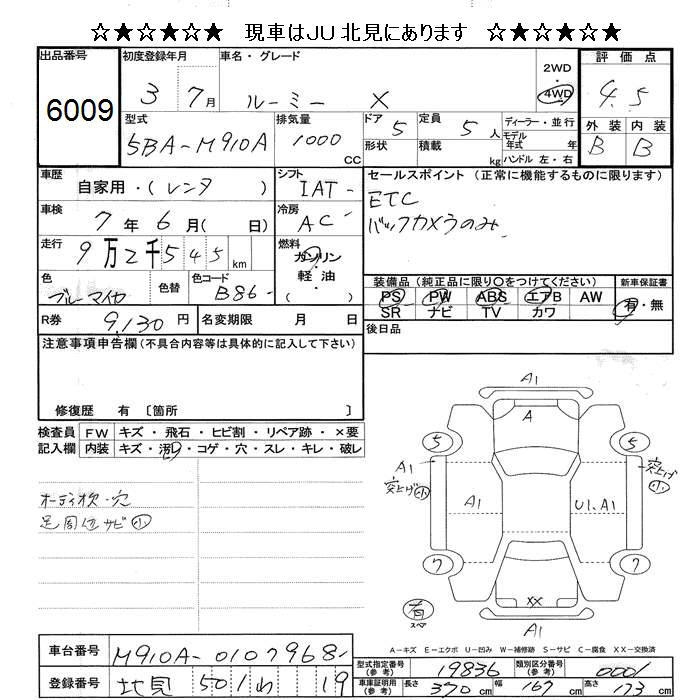 ☆★☆★☆★ 現車はJU北見にあります ☆★☆★☆★
出品番号
6009
初度登録年月
3 7月
車名・グレード
ルーミー X
2WD
・
4WD
評価点
4.5
外装 内装
B B
型式
5BA-M910A
排気量
1000
CC
ドア 5
形状
定員 5 人
積載 kg
ディーラー・並行
モデル
年式 年
ハンドル 左・右
車歴
自家用・(レンタ )
シフト
IAT
セールスポイント (正常に機能するものに限ります)
ETC
バックカメラのみ
車検
7年6月( 日)
冷房
AC
走行
9万2千545km
燃料
ガソリン
軽・油
( )
色
ブルーマイカ
色替
色コード
B86
装備品 (純正品に限り○をつけてください)
PS PW ABS エアB AW
SR ナビ TV カワ
新車保証書
有・無
R券 9,130 円
名変期限 月 日
後日品
注意事項申告欄 (不具合内容等は具体的に記入して下さい)
修復歴 有 〔箇所 〕
検査員
記入欄
FW キズ・飛石・ヒビ割・リペア跡・×要
内装 キズ・汚れ・コゲ・穴・スレ・キレ・破レ
オーディオ欠・穴
足周辺サビ小
A1
A
5 5
A1
突上げ小
突上げ小
A1
U1.A1
7 7
XX
有
スペア
A1
A-キズ E-エクボ U-凹み W-補修跡 S-サビ C-腐食 XX-交換済
車台番号
M910A-0107968
登録番号
北見 501 わ 19
型式指定番号
(参考)
19836
類別区分番号
(参考)
0001
車庫証明用
(参考)
長さ 370 cm
幅 167 cm
高さ 173 cm